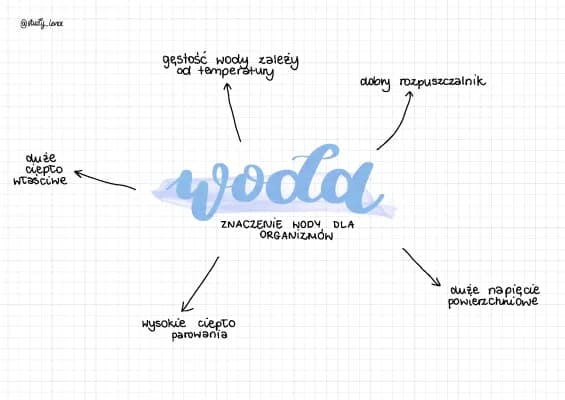 @study_lenax
gęstość wody zależy
od temperatury
dobry rozpuszczalnik
duże
ciepło
właściwe
woda
ZNACZENIE WODY DLA
ORGANIZMÓW
duże napięcie
powierzchniowe
wysokie ciepło
parowania